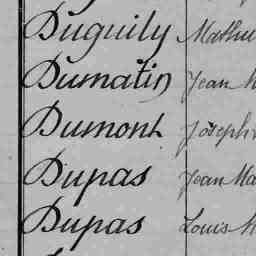 Duguily Mathu
Dumatin Jean M
Dumont Joseph
Dupas Jean Ma
Dupas Louis M